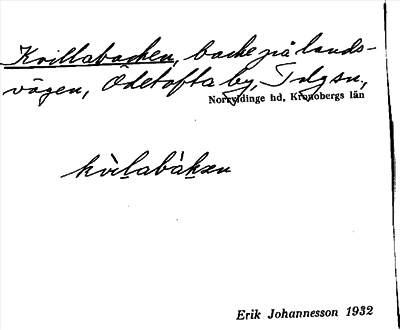 Kvillabacken, backe på lands-
vägen, Odetofta by, Tdgsn,
Norrvidinge hd, Kronobergs län
kv̀ịlabàkæn
Erik Johannesson 1932